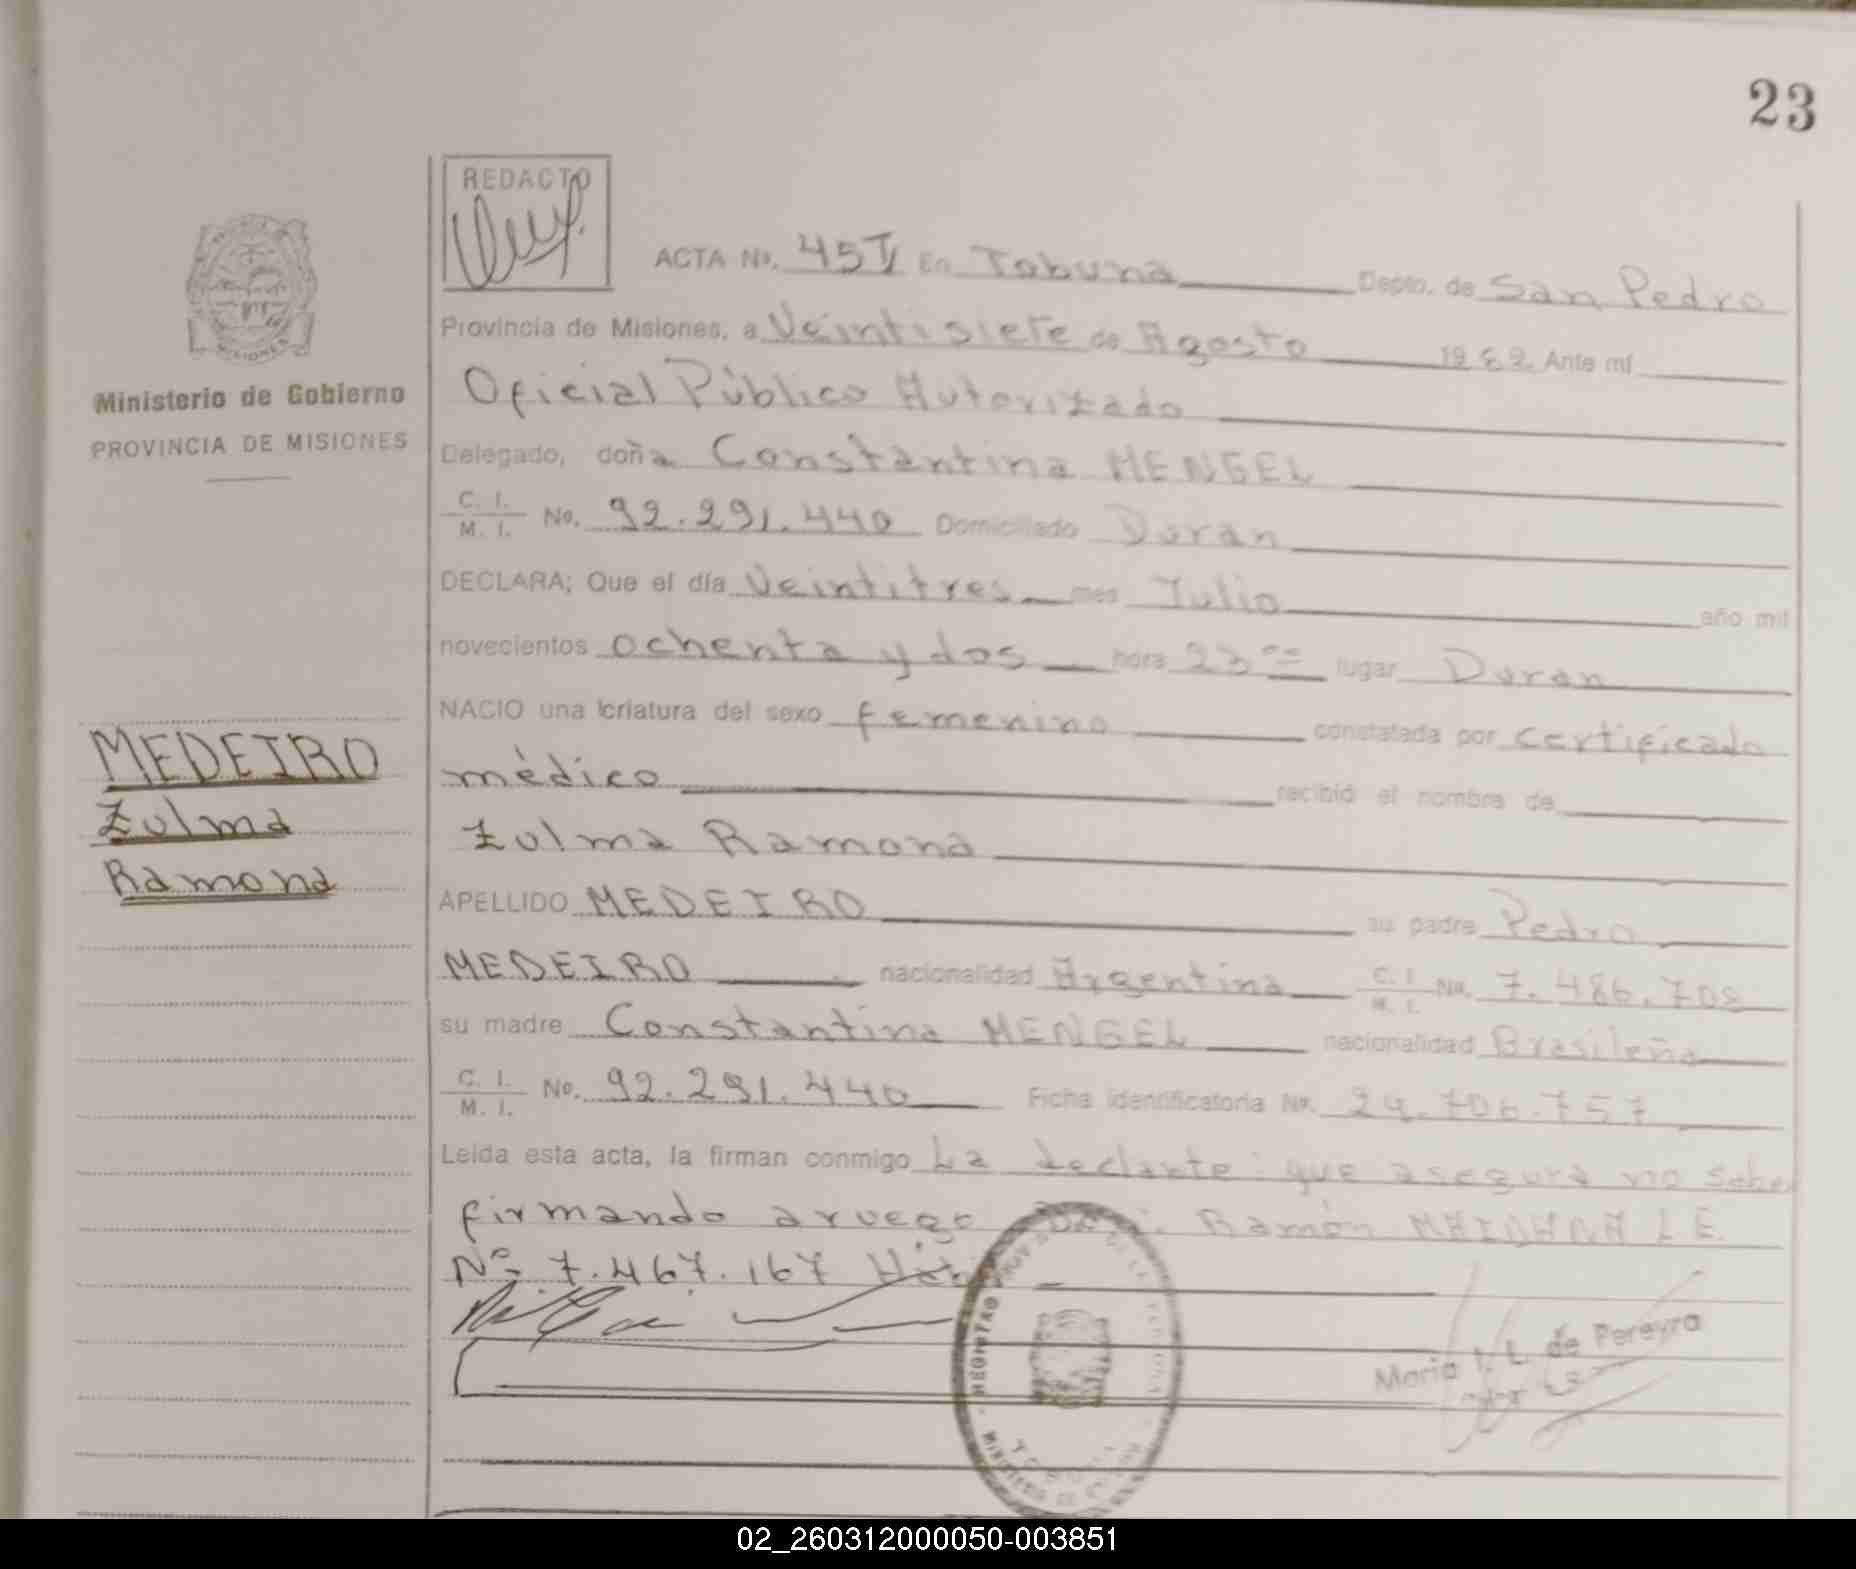 23
REDACTO
ACTA No. 45 En Tobuna Depto. de San Pedro
Provincia de Misiones, a Veintisiete de Agosto 1982. Ante mí
Oficial Público Autorizado
Ministerio de Gobierno
PROVINCIA DE MISIONES
MISIONES
Delegado, doña Constantina MENGEL
C. I.
M. I. No. 92.291.440 Domiciliado Duran
DECLARA; Que el día Veintitres mes Julio año mil
novecientos ochenta y dos hora 23 lugar Duran
NACIO una criatura del sexo femenino constatada por certificado
médico recibió el nombre de
MEDEIRO
Zulma
Ramona
Zulma Ramona
APELLIDO MEDEIRO su padre Pedro
MEDEIRO nacionalidad Argentina C. I.
M. I. No. 7.486.708
su madre Constantina MENGEL nacionalidad Brasileña
C. I.
M. I. No. 92.291.440 Ficha identificatoria No. 24.706.757
Leida esta acta, la firman conmigo La declante que asegura no saber
firmando a ruego Ramón L.E.
Nº 7.467.167
Maria I. L. de Pereyra
02_260312000050-003851